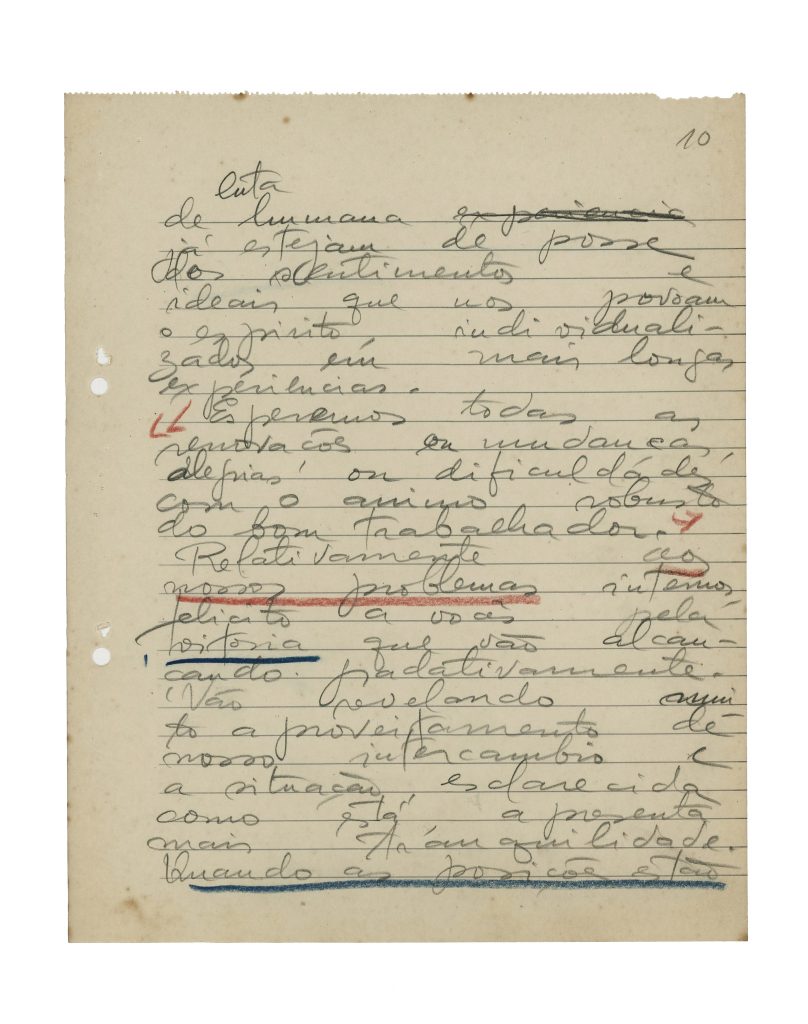 10
luta
de humana experiencia
já estejam de posse
dos sentimentos e
ideais que nos povoam
o espirito, individuali-
zados em mais longas
experiencias.
Esperemos todas as
renovações ou mudanças,
alegrias ou dificuldades
com o animo robusto
do bom trabalhador.
Relativamente aos
nossos problemas internos,
felicito a vocês pela
vitória que vão alcan-
çando gradativamente.
Vão revelando mui
to aproveitamento de
nosso intercambio e
a situação, esclarecida
como está, apresenta
mais tranquilidade.
Quando as posições estão